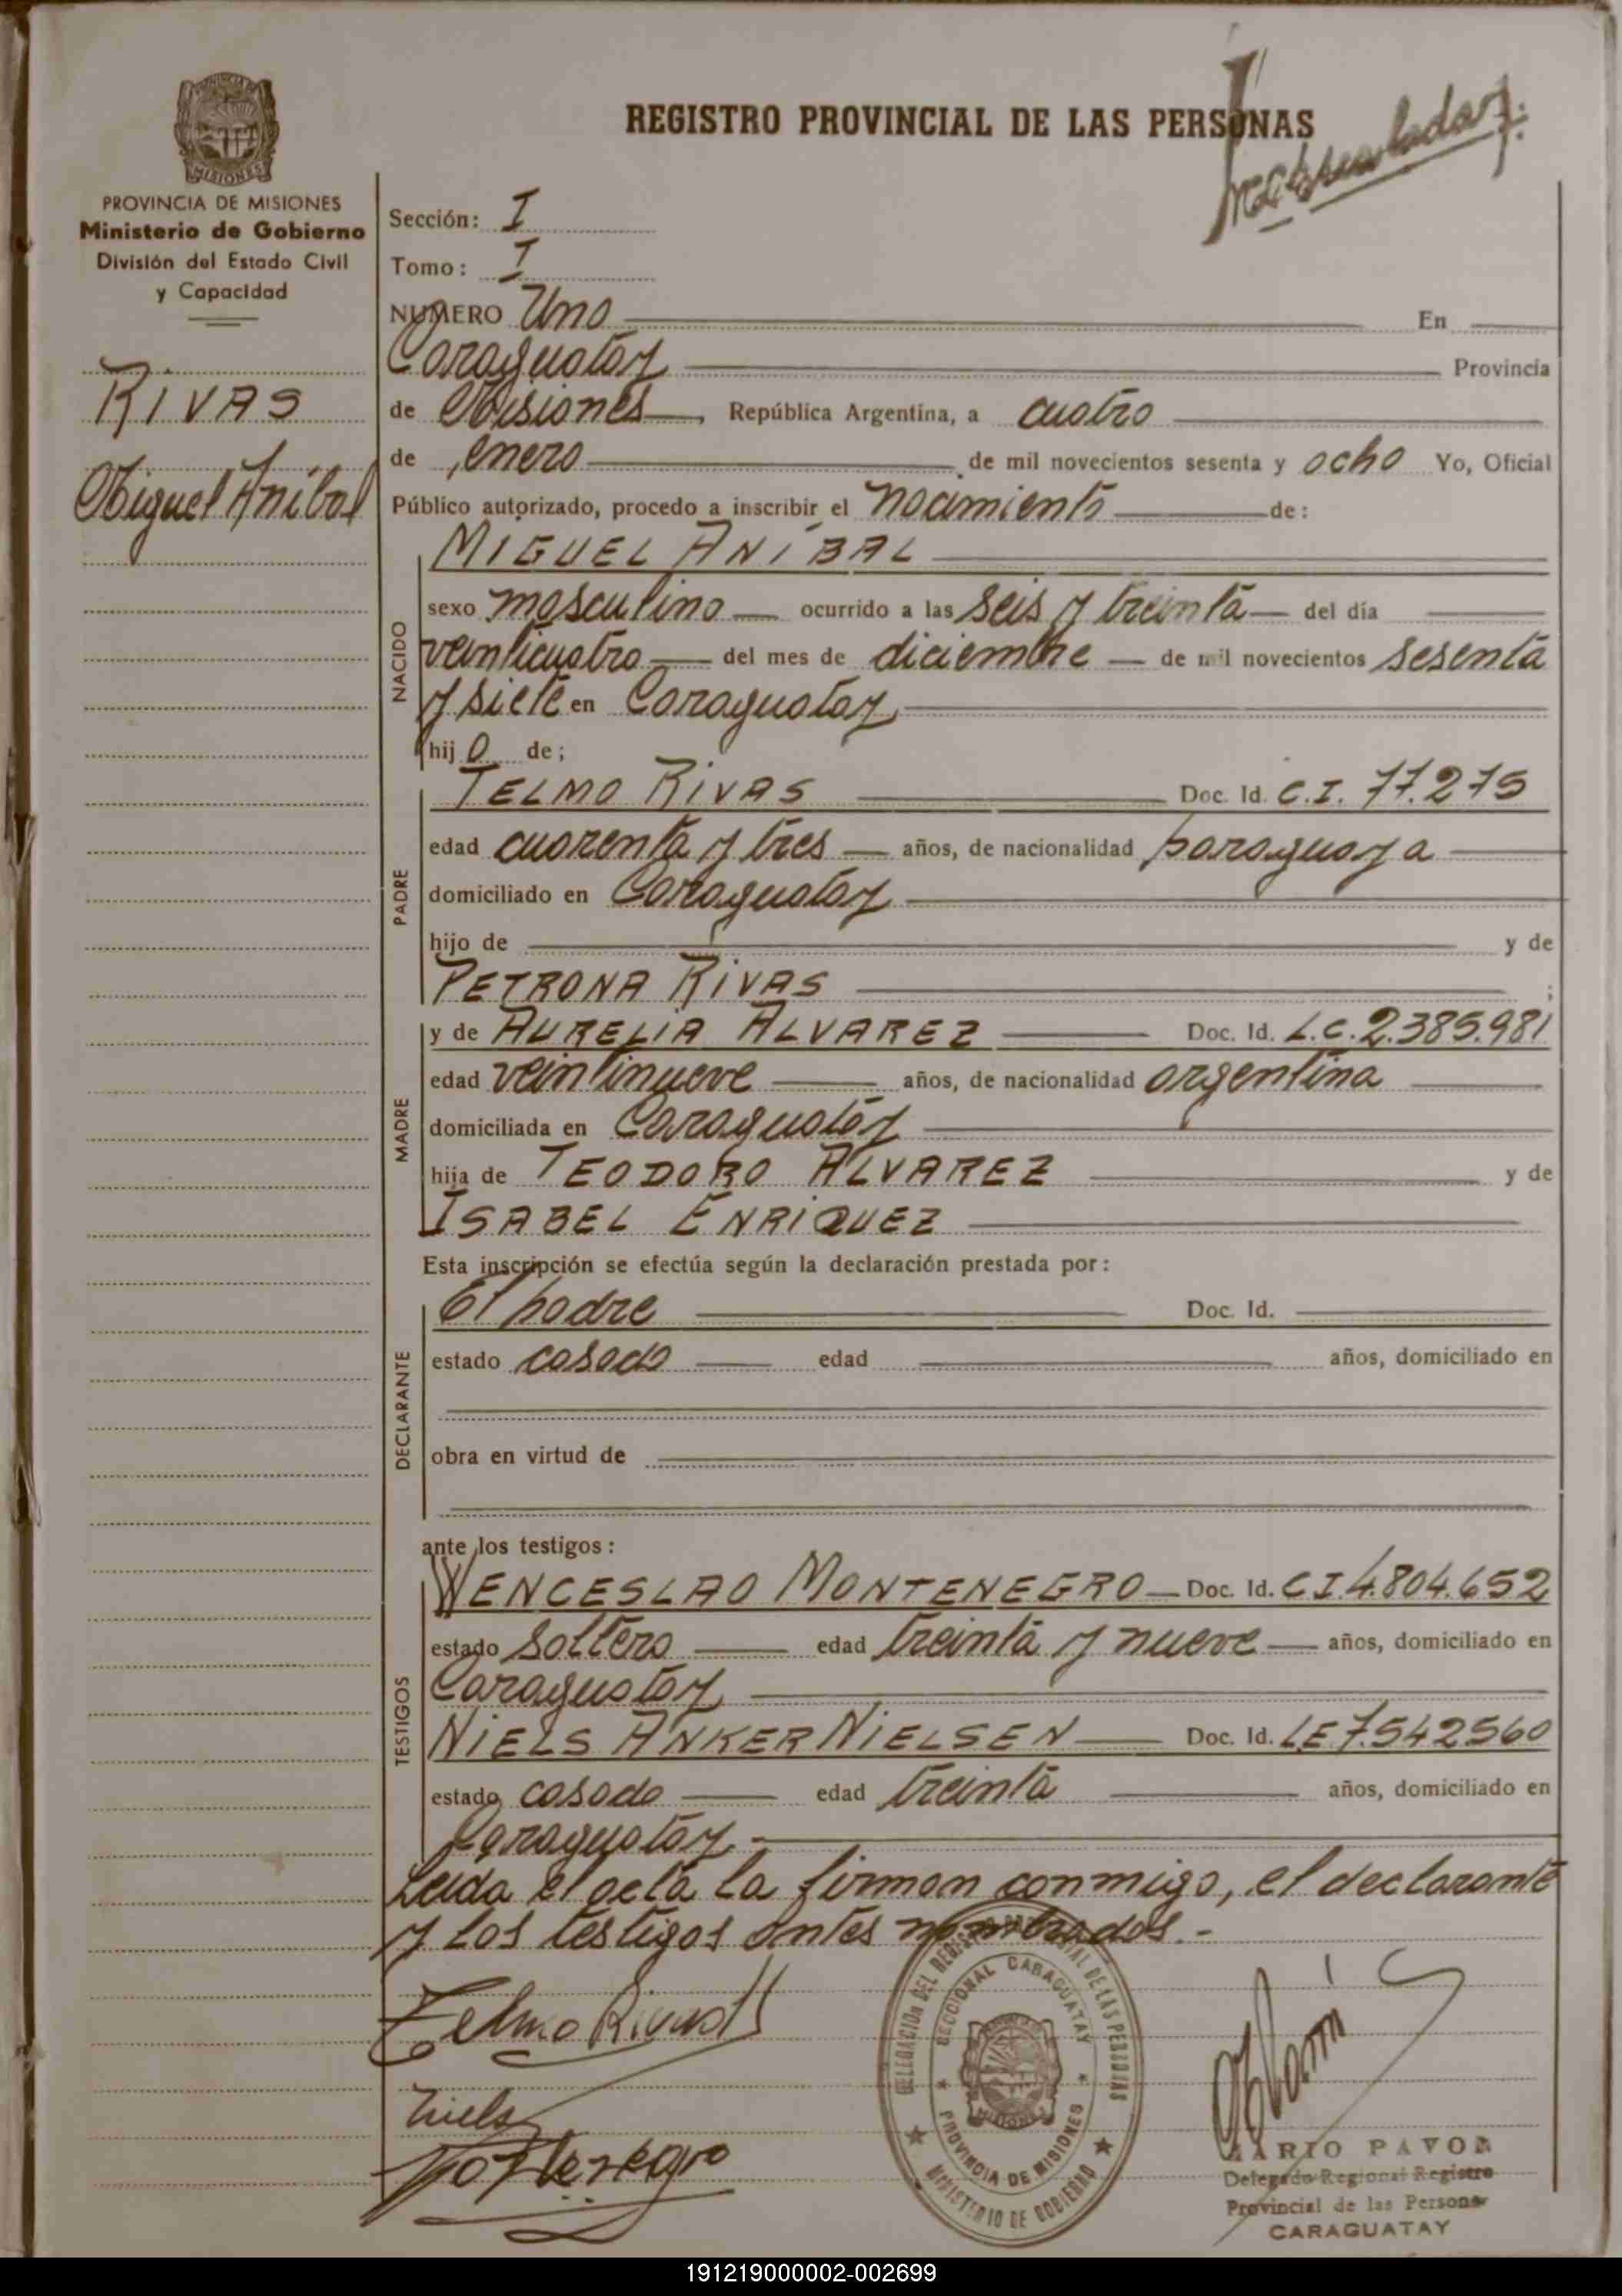 REGISTRO PROVINCIAL DE LAS PERSONAS
PROVINCIA DE MISIONES
Ministerio de Gobierno
División del Estado Civil
y Capacidad
RIVAS
Miguel Aníbal
Sección: I
Tomo: I
NUMERO Uno En
Caraguatay Provincia
de Misiones, República Argentina, a cuatro
de enero de mil novecientos sesenta y ocho Yo, Oficial
Público autorizado, procedo a inscribir el nacimiento de:
NACIDO
MIGUEL ANÍBAL
sexo masculino ocurrido a las seis y treinta del día
veinticuatro del mes de diciembre de mil novecientos sesenta
y siete en Caraguatay
hijo de;
PADRE
TELMO RIVAS Doc. Id. C.I. 77.275
edad cuarenta y tres años, de nacionalidad paraguaya
domiciliado en Caraguatay
hijo de y de
PETRONA RIVAS ;
MADRE
y de AURELIA ALVAREZ Doc. Id. L.C. 2.385.981
edad veintinueve años, de nacionalidad argentina
domiciliada en Caraguatay
hija de TEODORO ALVAREZ y de
ISABEL ENRIQUEZ
Esta inscripción se efectúa según la declaración prestada por:
DECLARANTE
El padre Doc. Id.
estado casado edad años, domiciliado en
obra en virtud de
ante los testigos:
TESTIGOS
WENCESLAO MONTENEGRO Doc. Id. CI 4.804.652
estado soltero edad treinta y nueve años, domiciliado en
Caraguatay
NIELS ANKER NIELSEN Doc. Id. LE 7.542560
estado casado edad treinta años, domiciliado en
Caraguatay.-
Leida el acta la firman conmigo, el declarante
y los testigos antes nombrados.-
Telmo Rivas
Niels
DELEGACION DEL REGISTRO PROVINCIAL DE LAS PERSONAS
SECCIONAL CARAGUATAY
PROVINCIA DE MISIONES
MINISTERIO DE GOBIERNO
MARIO PAVON
Delegado Regional Registro
Provincial de las Personas
CARAGUATAY
191219000002-002699